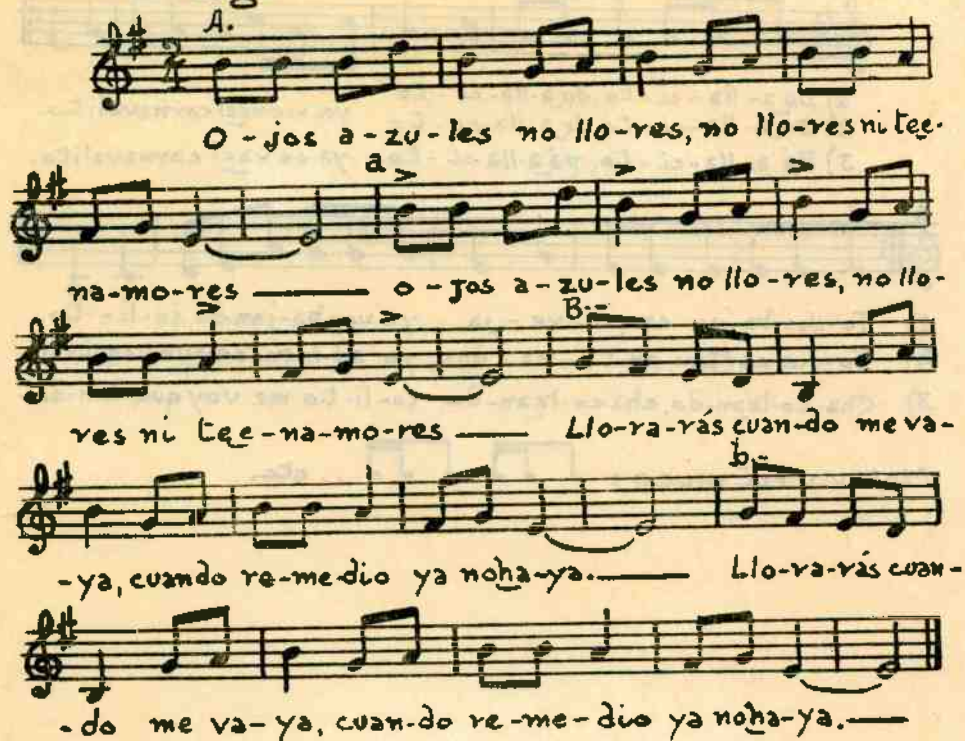 A.
O-jos a-zu-les no llo-res, no llo-res ni tee-
a
na-mo-res — o-jos a-zu-les no llo-res, no llo-
B.-
res ni tee-na-mo-res — Llo-ra-rás cuan-do me va-
b.-
-ya, cuando re-me-dio ya noha-ya. — Llo-ra-rás cuan-
-do me va-ya, cuan-do re-me-dio ya noha-ya. —